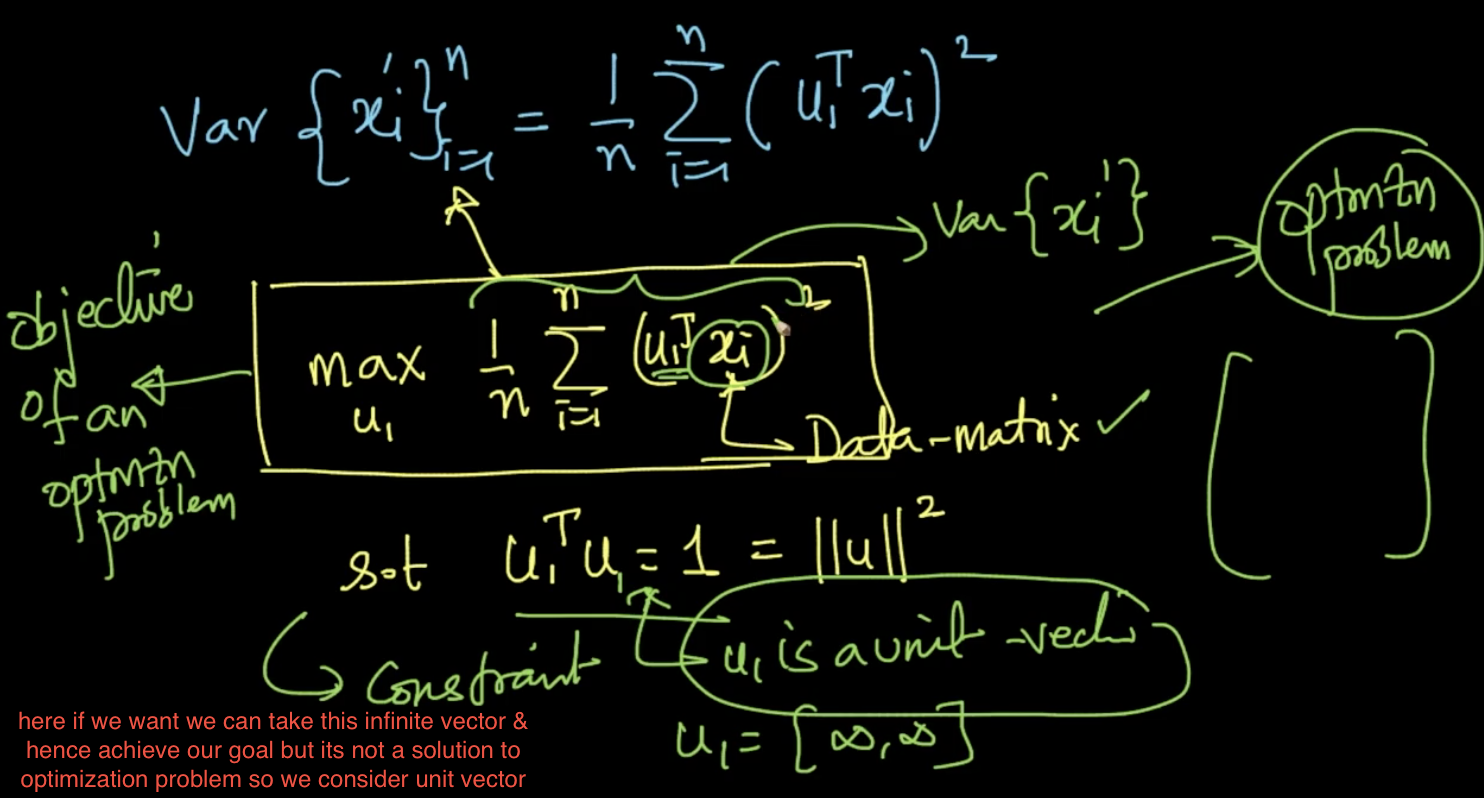 Var {xi'}ⁿ i=1 = 1/n Σⁿ i=1 (u₁ᵀ xi)²
Var {xi'}
optmzn
problem
objective
of an
optmzn
problem
max
u₁
1/n Σⁿ i=1 (u₁ᵀ xi)²
Data-matrix ✓
s.t u₁ᵀ u₁ = 1 = ||u||²
Constraint
u₁ is a unit-vect
u₁ = [∞, ∞]
here if we want we can take this infinite vector &
hence achieve our goal but its not a solution to
optimization problem so we consider unit vector